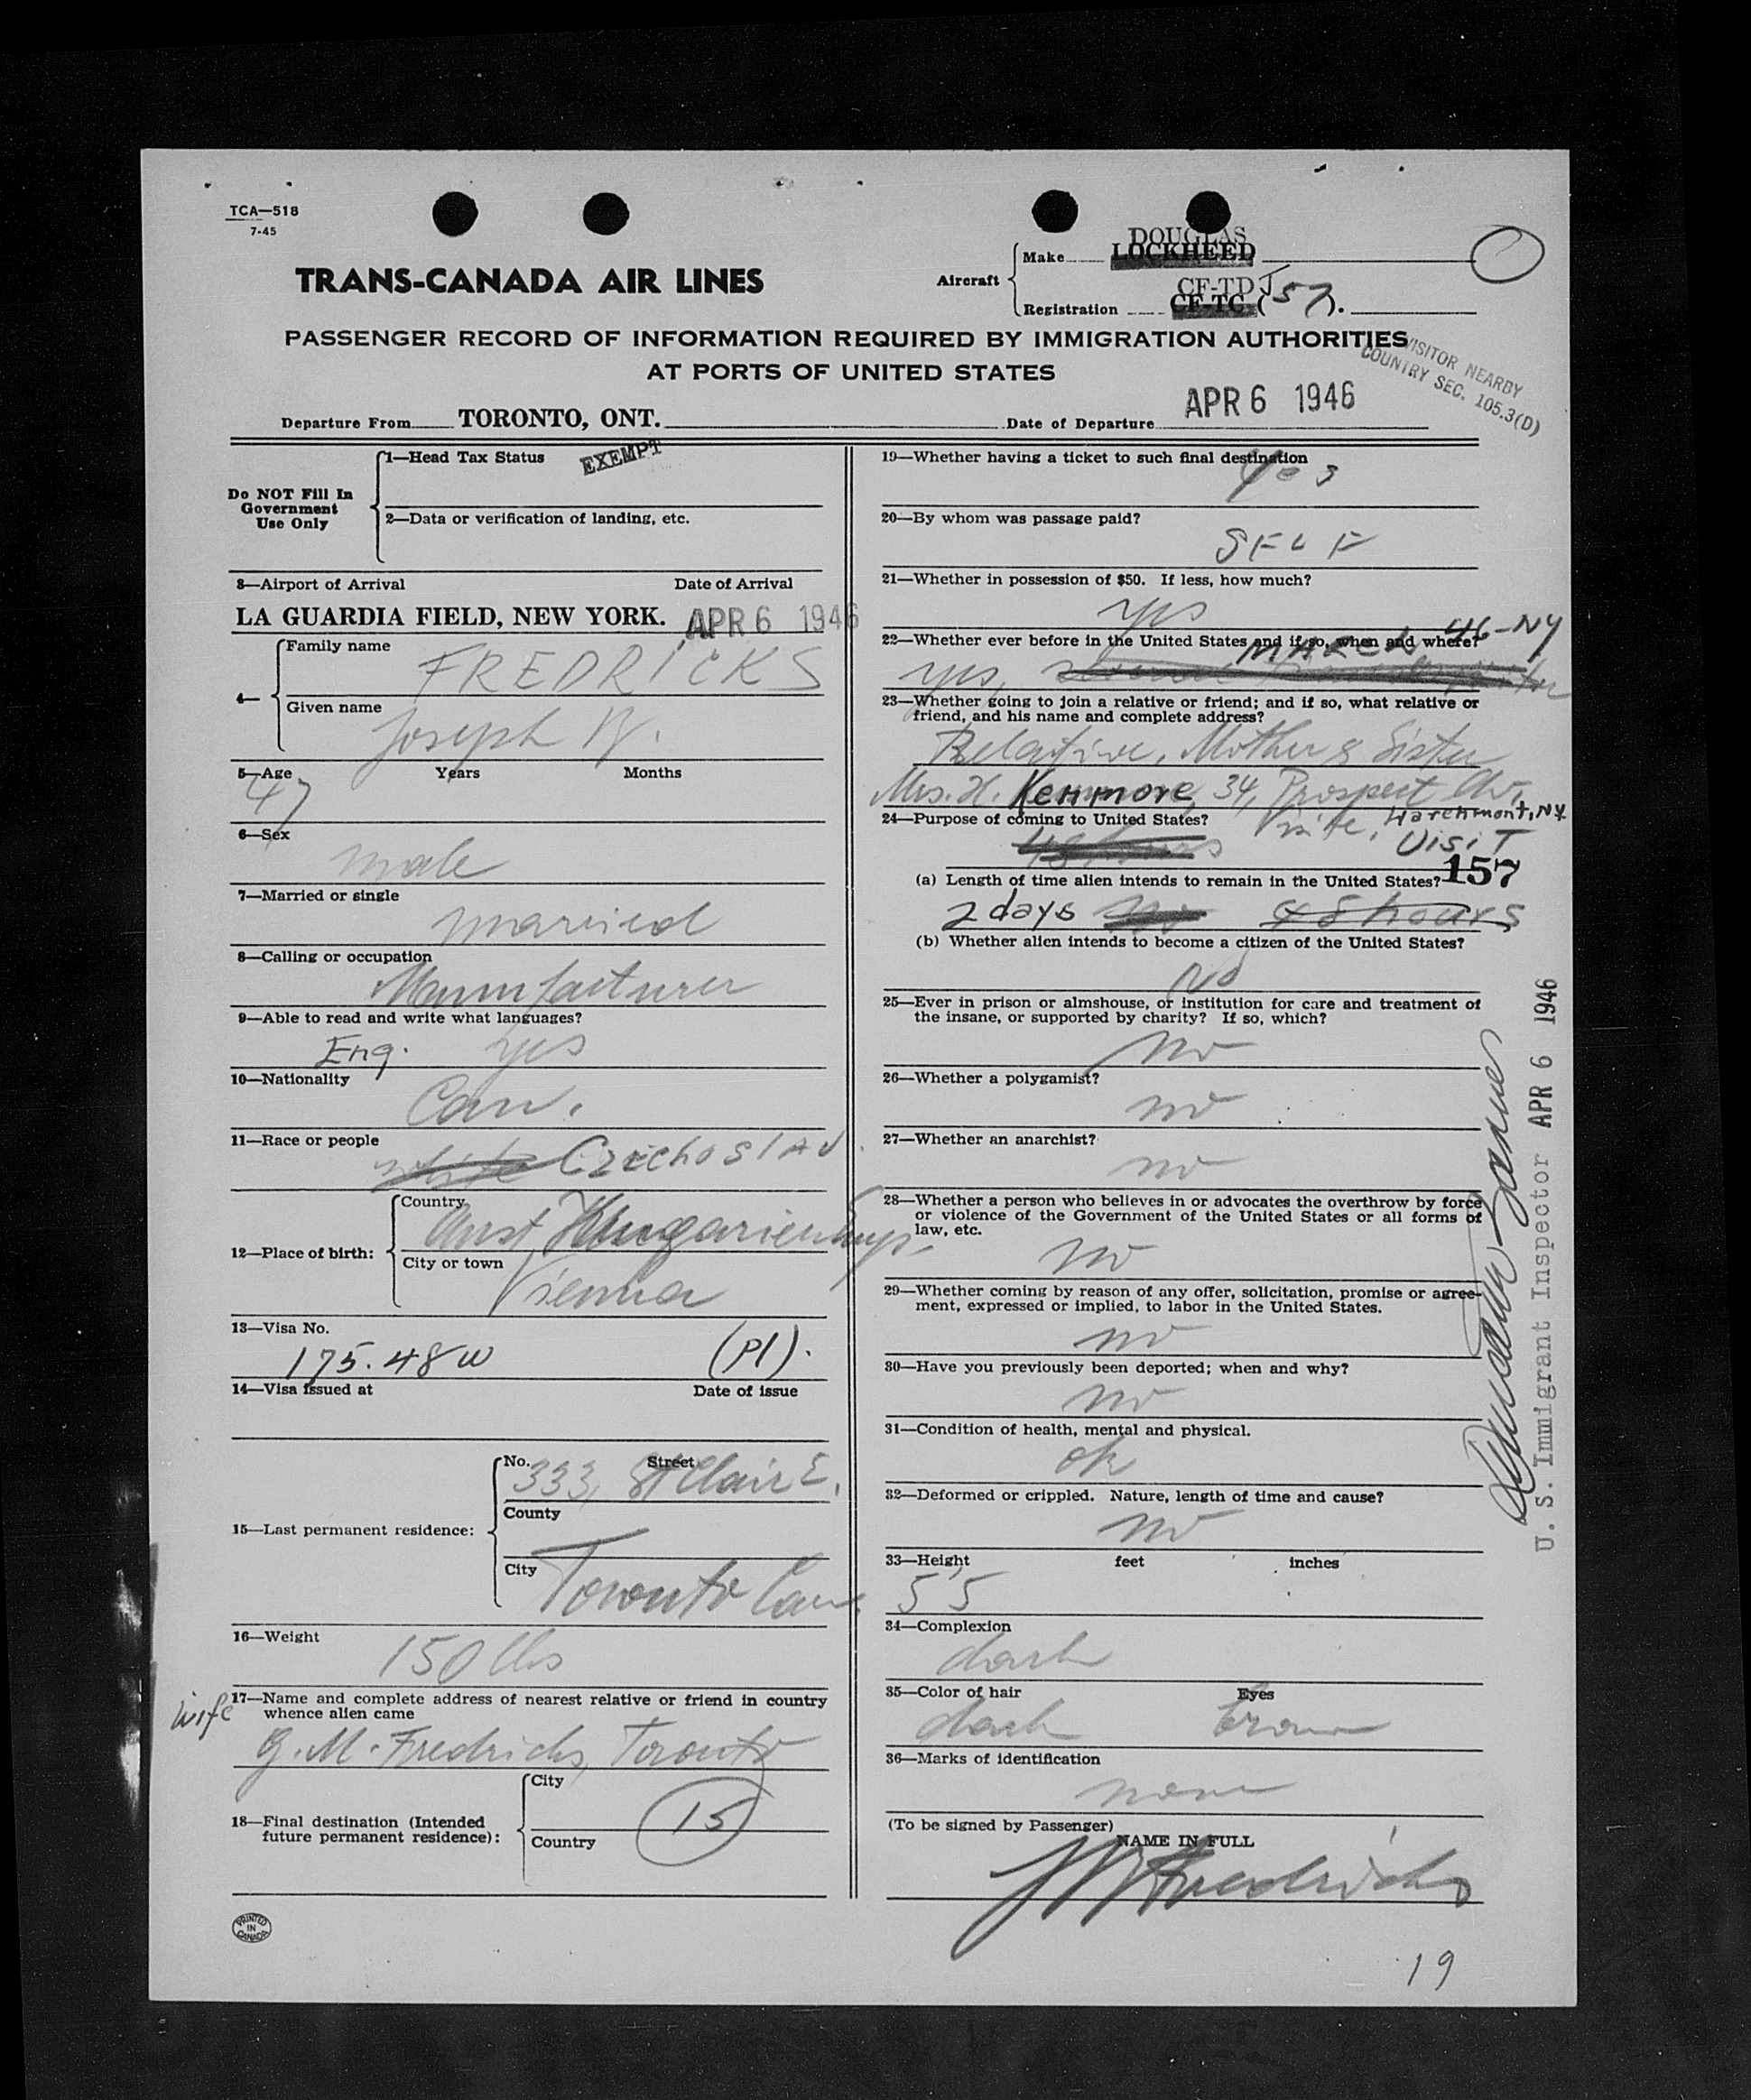 TCA—518
7-45
TRANS-CANADA AIR LINES
Aircraft
Make
DOUGLAS
LOCKHEED
Registration
CF-TD J
CF-TC (57).
PASSENGER RECORD OF INFORMATION REQUIRED BY IMMIGRATION AUTHORITIES
AT PORTS OF UNITED STATES
VISITOR NEARBY
COUNTRY SEC. 105.3(D)
Departure From TORONTO, ONT. Date of Departure APR 6 1946
Do NOT Fill In
Government
Use Only
1—Head Tax Status EXEMPT
2—Data or verification of landing, etc.
3—Airport of Arrival Date of Arrival
LA GUARDIA FIELD, NEW YORK. APR 6 1946
4—
Family name
FREDRICKS
Given name
Joseph W.
5—Age Years Months
47
6—Sex
male
7—Married or single
married
8—Calling or occupation
Manufacturer
9—Able to read and write what languages?
Eng. yes
10—Nationality
Can.
11—Race or people
white CzEchoslAv
12—Place of birth:
Country
Aust Hungarien Emp.
City or town
Vienna
13—Visa No.
175.48W (P1).
14—Visa issued at Date of issue
15—Last permanent residence:
No. Street
333, St Clair E.
County
City
Toronto Can.
16—Weight
150 lbs
wife
17—Name and complete address of nearest relative or friend in country
whence alien came
G. M. Fredricks, Toronto
18—Final destination (Intended
future permanent residence):
City
15
Country
PRINTED
IN
CANADA
19—Whether having a ticket to such final destination
yes
20—By whom was passage paid?
SELF
21—Whether in possession of $50. If less, how much?
yes
22—Whether ever before in the United States and if so, when and where?
yes, MARCH 46-NY
23—Whether going to join a relative or friend; and if so, what relative or
friend, and his name and complete address?
Relative, Mother & Sister
Mrs. H. Kenmore, 34, Prospect Av.
Larchmont, NY
24—Purpose of coming to United States?
48 hours Visite, Visit
(a) Length of time alien intends to remain in the United States? 157
2 days No 48 hours
(b) Whether alien intends to become a citizen of the United States?
No
25—Ever in prison or almshouse, or institution for care and treatment of
the insane, or supported by charity? If so, which?
no
26—Whether a polygamist?
no
27—Whether an anarchist?
no
28—Whether a person who believes in or advocates the overthrow by force
or violence of the Government of the United States or all forms of
law, etc.
no
29—Whether coming by reason of any offer, solicitation, promise or agree-
ment, expressed or implied, to labor in the United States.
no
30—Have you previously been deported; when and why?
no
31—Condition of health, mental and physical.
ok
32—Deformed or crippled. Nature, length of time and cause?
no
33—Height feet inches
5 5
34—Complexion
dark
35—Color of hair Eyes
dark brown
36—Marks of identification
none
(To be signed by Passenger)
NAME IN FULL
JW Fredricks
19
U. S. Immigrant Inspector APR 6 1946